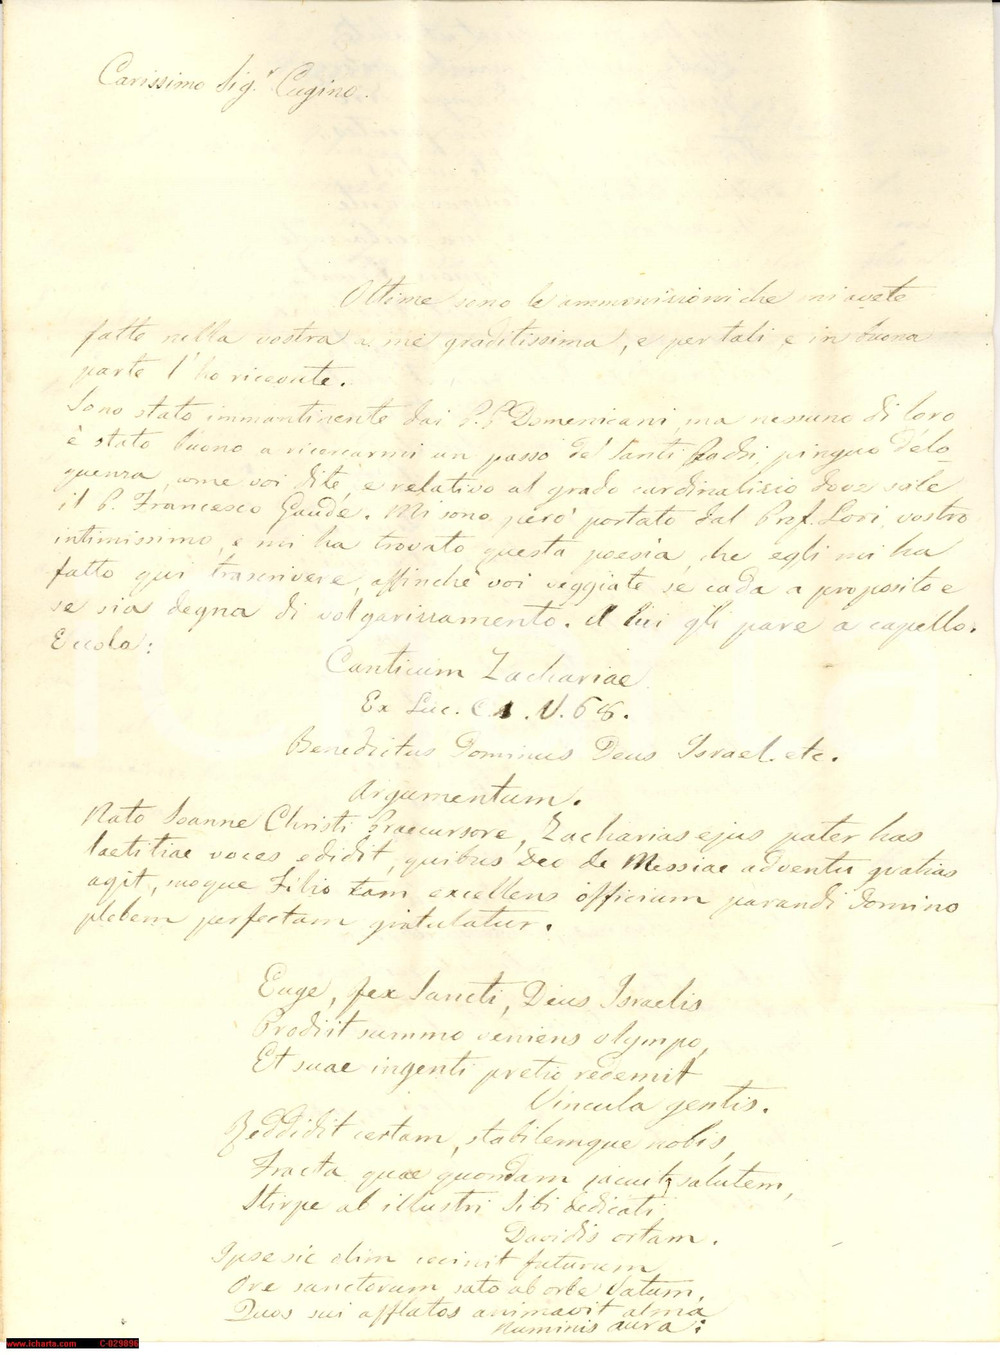 Carissimo Sig.r Cugino.
Ottime sono le ammonizioni che mi avete
fatto nella vostra a me graditissima, e per tali e in buona
parte l'ho ricevute.
Sono stato immantinente dai P.P. Domenicani, ma nessuno di loro
è stato buono a ricercarmi un passo de' Santi Padri pinguo d'elo-
quenza, come voi dite, e relativo al grado cardinalizio dove sale
il P. Francesco Gaude. Mi sono però portato dal Prof. Lori, vostro
intimissimo, e mi ha trovato questa poesia, che egli mi ha
fatto qui trascrivere, affinchè voi veggiate se cada a proposito e
se sia degna di volgarizzamento. A lui gli pare a capello.
Eccola:
Canticum Zachariae
Ex Luc. C. 1. V. 68.
Benedictus Dominus Deus Israel. etc.
Argumentum.
Nato Joanne Christi Praecursore, Zacharias ejus pater has
laetitiae voces edidit, quibus Deo de Messiae adventu gratias
agit, moque Filio tam excellens officium parandi Domino
plebem perfectam gratulatur.
Euge, Rex Sancti, Deus Israelis
Prodiit summo veniens olympo,
Et suae ingenti pretio redemit
Vincula gentis.
Reddidit certam, stabilemque nobis,
Fracta quae quondam jacuit, salutem,
Stirpe ab illustri Sibi dedicati
Davidis ortam.
Ipse sic olim cecinit futurum
Ore sanctorum sato ab orbe Vatum,
Quos sui afflatos animavit alma
Numinis aura:
www.icharta.com C-029896